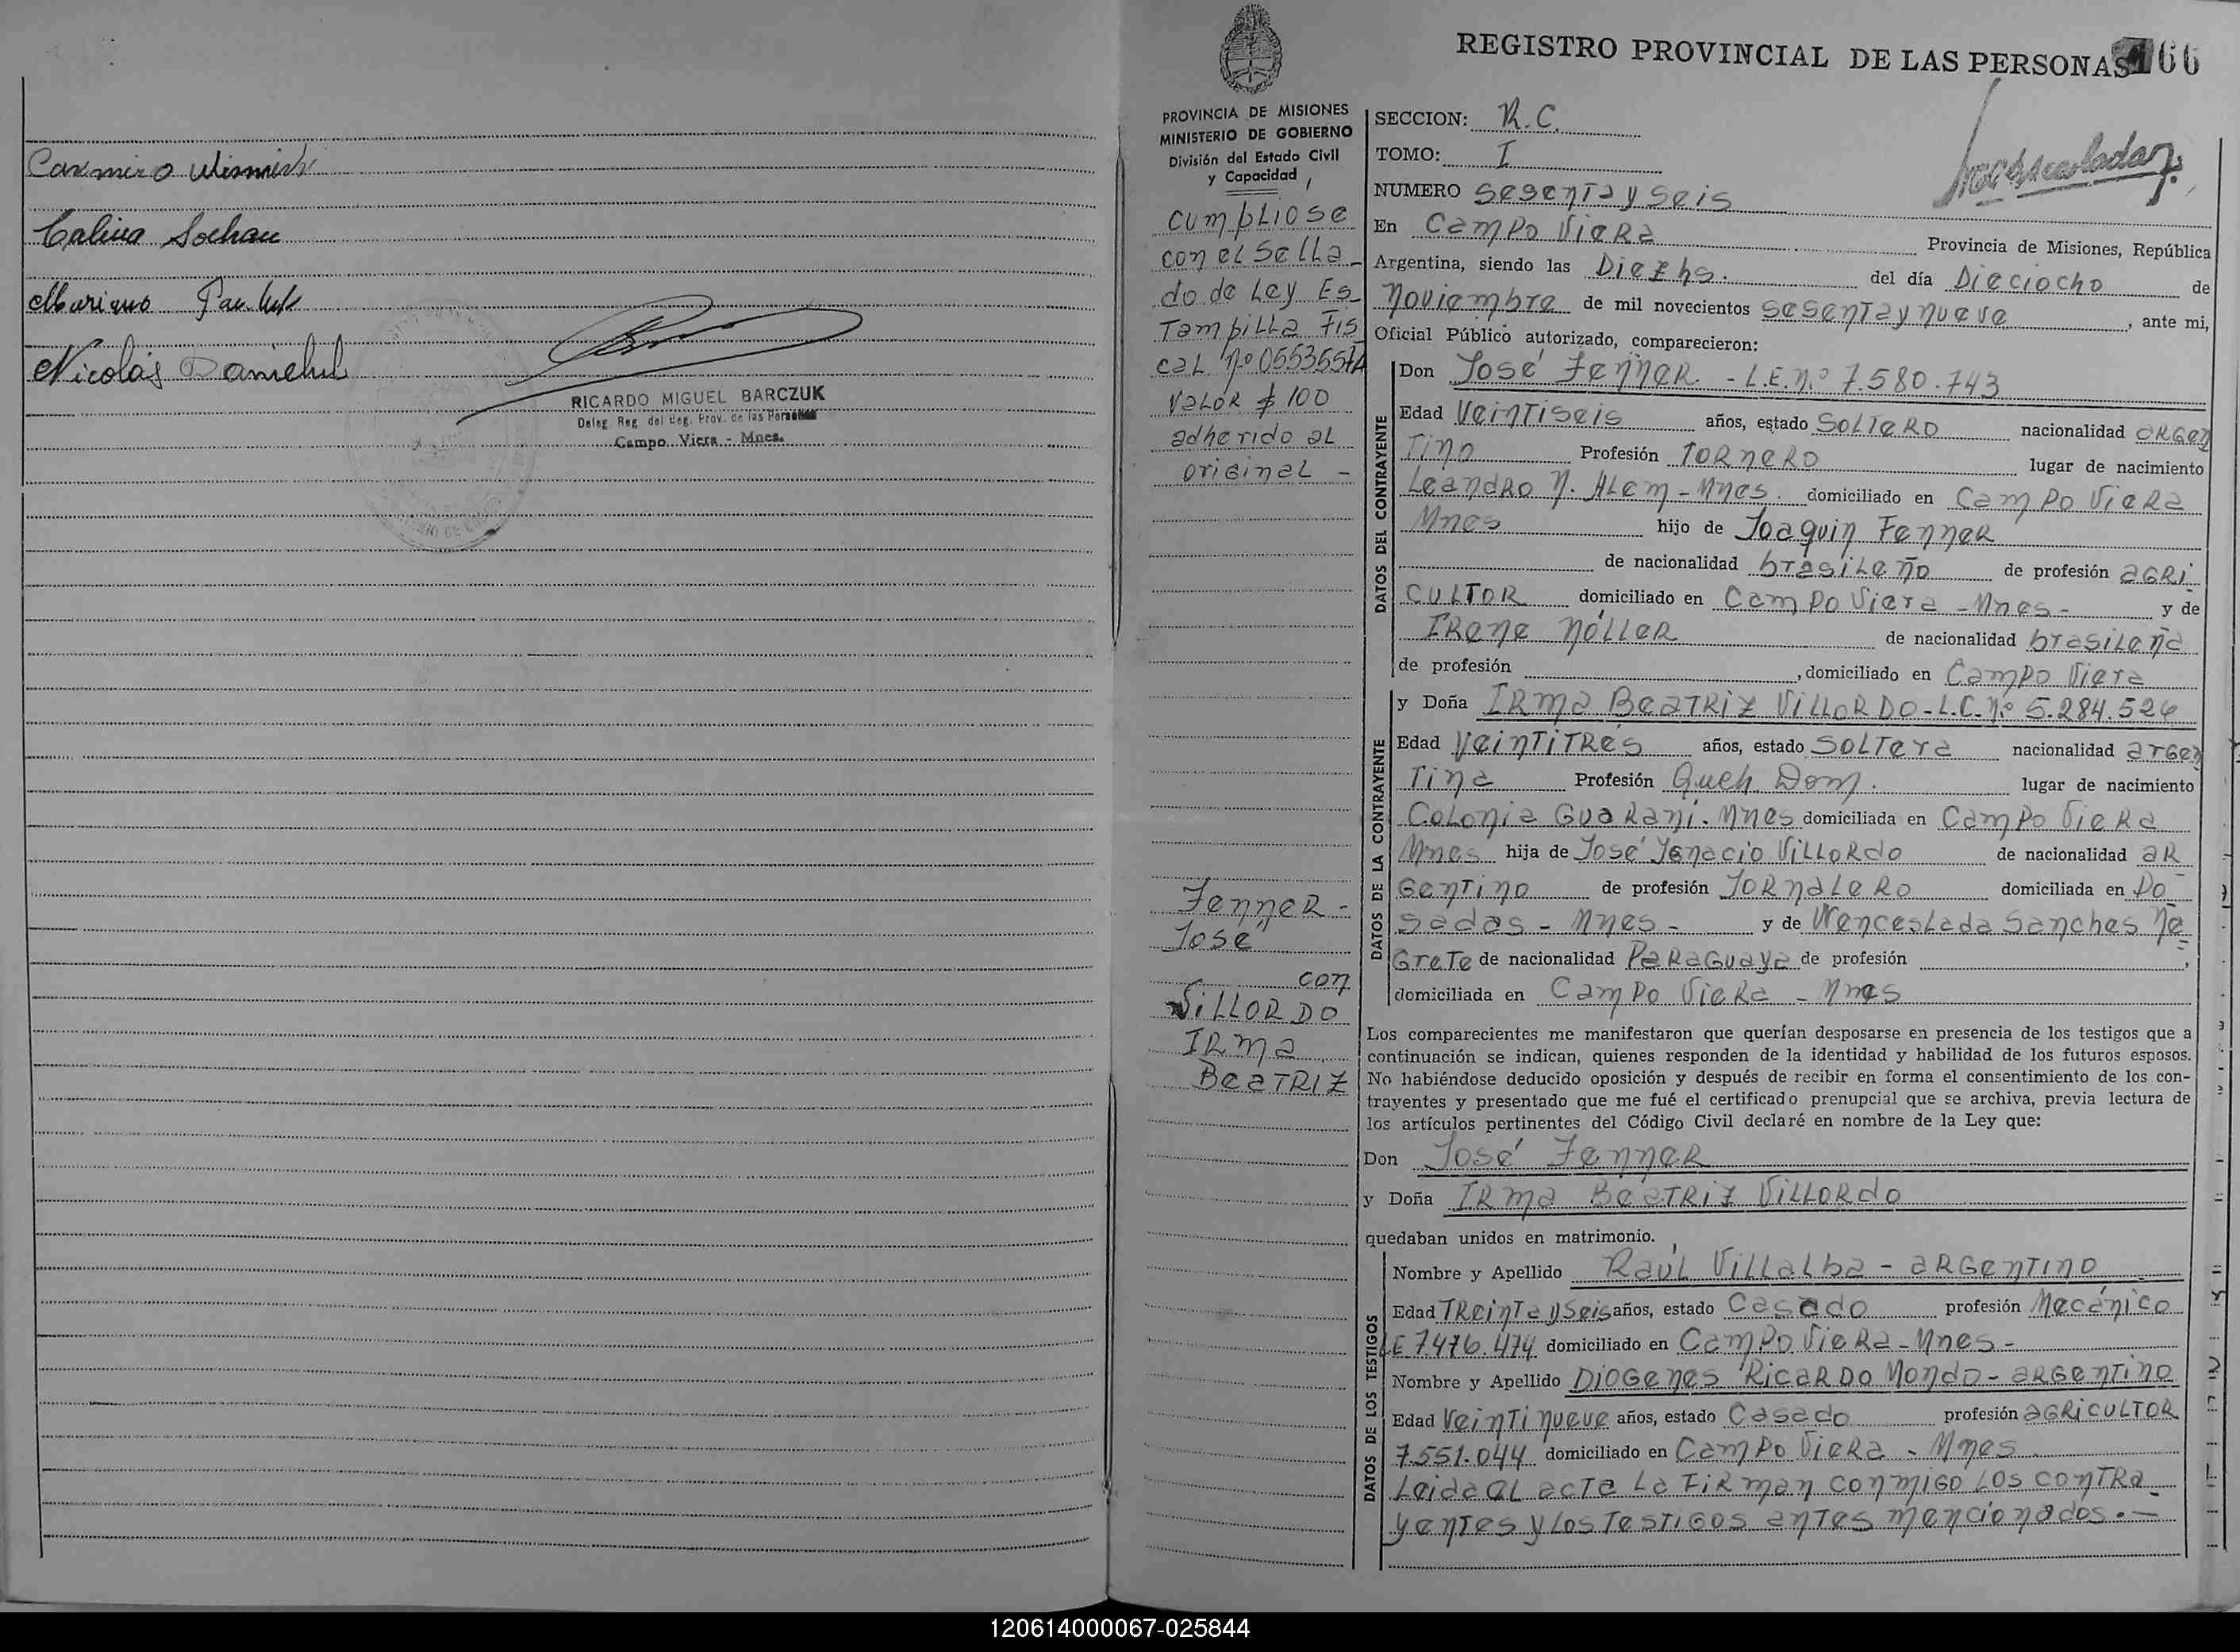 Nicolás
RICARDO MIGUEL BARCZUK
Deleg. Reg. del Reg. Prov. de las Personas
Campo Viera - Mnes.
REGISTRO PROVINCIAL DE LAS PERSONAS
66
PROVINCIA DE MISIONES
MINISTERIO DE GOBIERNO
División del Estado Civil
y Capacidad
cumpliose
con el sella_
do de Ley Es_
Tampilla Fis
cal nº
Valor $ 100
adherido al
original -
Fenner -
José
con
Villordo
Irma
Beatriz
SECCION: R.C.
TOMO: I
NUMERO sesenta y seis
En Campo Viera Provincia de Misiones, República
Argentina, siendo las Diez hs. del día Dieciocho de
noviembre de mil novecientos sesenta y nueve, ante mi,
Oficial Público autorizado, comparecieron:
DATOS DEL CONTRAYENTE
Don José Fenner. - L.E. nº 7.580.743
Edad Veintiseis años, estado Soltero nacionalidad argen
tino Profesión Tornero lugar de nacimiento
Leandro N. Alem - Mnes. domiciliado en Campo Viera
Mnes hijo de Joaquin Fenner
de nacionalidad brasileño de profesión agri_
cultor domiciliado en Campo Viera - Mnes - y de
Irene Nöller de nacionalidad brasileña
de profesión , domiciliado en Campo Viera
DATOS DE LA CONTRAYENTE
y Doña Irma Beatriz Villordo - L.C. nº 5.284.526
Edad Veintitrés años, estado soltera nacionalidad argen
tina Profesión Queh. Dom. lugar de nacimiento
Colonia Guaraní - Mnes domiciliada en Campo Viera
Mnes hija de José Ignacio Villordo de nacionalidad ar_
gentino de profesión Jornalero domiciliada en Po_
sadas - Mnes - y de Wenceslada Sanches Ne_
grete de nacionalidad Paraguaya de profesión ,
domiciliada en Campo Viera - Mnes
Los comparecientes me manifestaron que querían desposarse en presencia de los testigos que a
continuación se indican, quienes responden de la identidad y habilidad de los futuros esposos.
No habiéndose deducido oposición y después de recibir en forma el consentimiento de los con-
trayentes y presentado que me fué el certificado prenupcial que se archiva, previa lectura de
los artículos pertinentes del Código Civil declaré en nombre de la Ley que:
Don José Fenner
y Doña Irma Beatriz Villordo
quedaban unidos en matrimonio.
DATOS DE LOS TESTIGOS
Nombre y Apellido Raúl Villalba - argentino
Edad Treinta y seis años, estado Casado profesión Mecánico
LE 7476.474 domiciliado en Campo Viera - Mnes -
Nombre y Apellido Diogenes Ricardo Mondo - argentino
Edad Veintinueve años, estado Casado profesión agricultor
7.551.044 domiciliado en Campo Viera - Mnes
Leida el acta la firman conmigo los contra_
yentes y los testigos antes mencionados. -
120614000067-025844